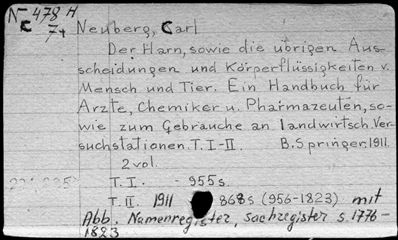 N 478 H
C 74
Neuberg, Carl
Der Harn, sowie die übrigen Aus-
scheidungen und Körperflüssigkeiten v.
Mensch und Tier. Ein Handbuch für
Ärzte, Chemiker u. Pharmazeuten, so-
wie zum Gebrauche an landwirtsch. Ver-
suchstationen. T. I-II. B. Springer. 1911.
2 vol.
T. I. - 955 s.
T. II. 1911 868 s (956-1823) mit
Abb. Namenregister, sachregister s. 1776-
1823